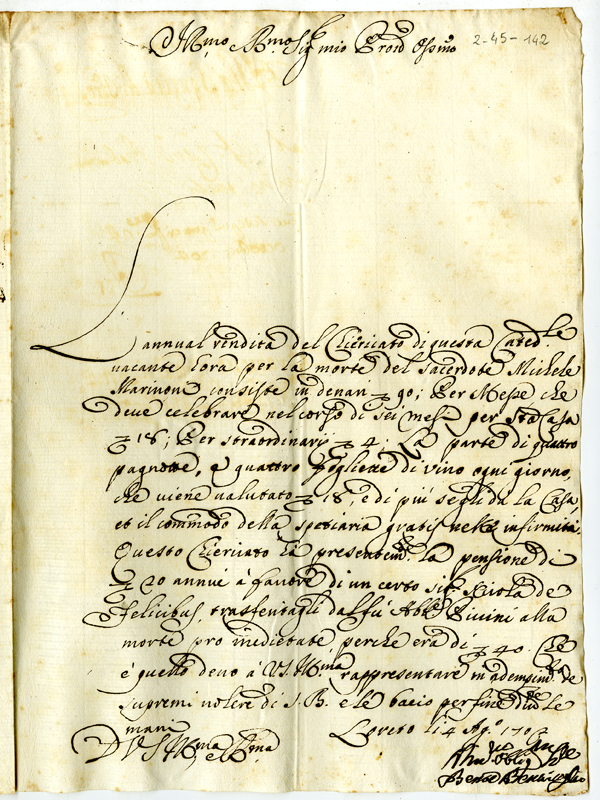 Ill.mo R.mo Sig.r mio P.rone Oss.mo
2-45-142
L'annual rendita del Chiericato di questa Cated.le
vacante hora per la morte del sacerdote Michele
Marinoni consiste in denari 90; Per Messe che
deve celebrare nel corso di sei mesi per S.ta Casa
18; Per straordinarij 4. La parte di quattro
pagnotte, e quattro fogliette di vino ogni giorno,
che viene valutato 18, e di più segli da la Casa,
et il commodo della spetiaria gratis nelle infirmità.
Questo Chiericato hà presentem.te la pensione di
20 annui à favore di un certo Sig.r Nicola de
Felicibus, trasferitagli dal fù Ab.e Vicini alla
morte pro medietate, perche era di 40. Che
è quello devo à V.S. Ill.ma rappresentare in adempim.to de
supremi voleri di S. B. e le bacio per fine div.te le
mani Loreto li 4 Ag.o
D V S Ill.ma e R.ma